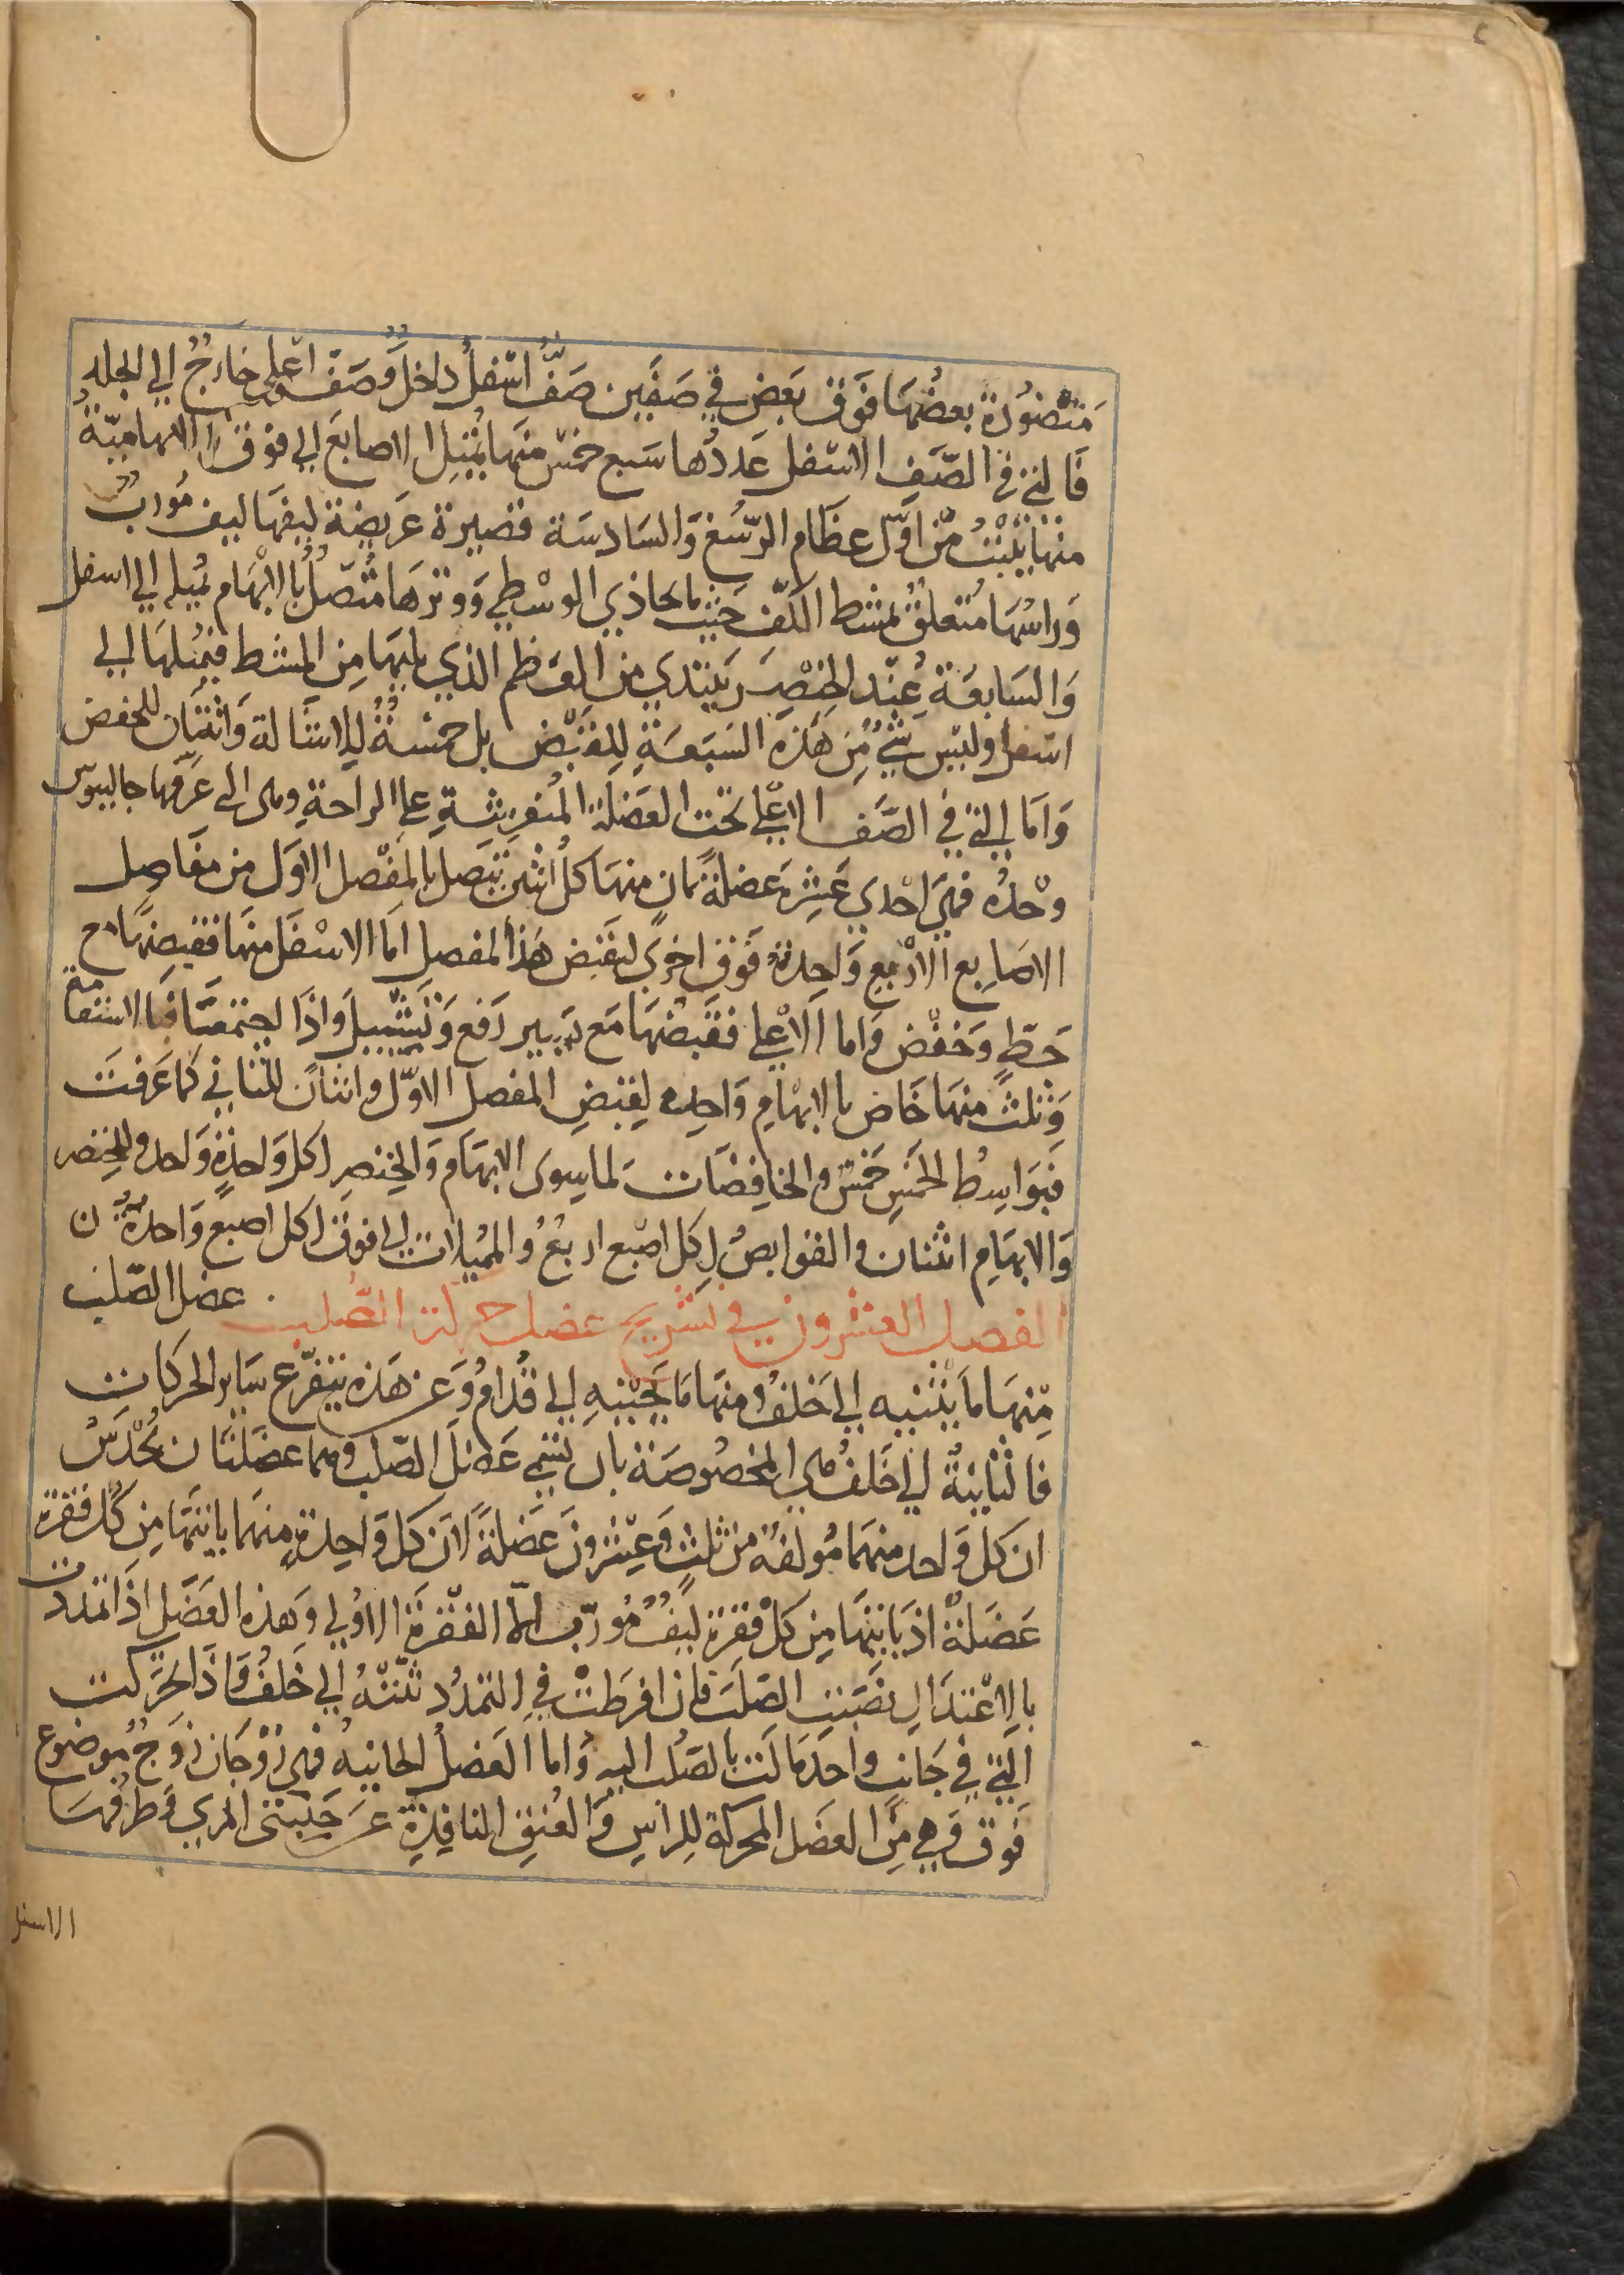 منضودة بعضها فوق بعض في صفين صف اسفل داخل وصف اعلى خارج الي الجلد
فالتي في الصف الاسفل عددها سبع خمس منها تميل الاصابع الي فوق الابهامية
منها ينبت من اول عظام الرسغ والسادسة قصيرة عريضة ليفها ليف مورب
وراسها متعلق بمشط الكف حيث ما يحاذي الوسطي ووترها متصل بالابهام تميله الي اسفل
والسابعة عند الخنصر يبتدي من العظم الذي يليها من المشط فيميلها الي
اسفل وليس شي من هذه السبعة للقبض بل خمسة للاشالة واثنتان للخفض
واما التي في الصف الاعلي تحت العضلة المنفرشة علي الراحة وهى التي عرفها جالينوس
وحده فهي احدي عشر عضلة ثمان منها كل اثنين تتصل بالمفصل الاول من مفاصل
الاصابع الاربع واحدة فوق اخري لتقبض هذا المفصل اما الاسفل منها فقبضها مع
حط وخفض واما الاعلي فقبضها مع يسير رفع وتشييل واذا اجتمعتا فبالاستقامة
وثلث منها خاص بالابهام واحده لقبض المفصل الاول واثنان للثاني كما عرفت
فبواسط الخمس خمس والخافضات لما سوى الابهام والخنصر لكل واحدة واحد وللخنصر
والابهام اثنتان والقوابض لكل اصبع اربع والمميلات الي فوق لكل اصبع واحدة
الفصل العشرون في تشريح عضل حركة الصلب . عضل الصلب
منها ما يثنيه الي خلف ومنها ما يحنيه الي قدام وعن هذه يتفرع ساير الحركات
فالثانية الي خلف هي المخصوصة بان تسمي عضل الصلب وهما عضلتان يحدس
ان كل واحد منهما مولفة من ثلث وعشرون عضلة لان كل واحدة منهما ياتيها من كل فقرة
عضلة اذ ياتيها من كل فقرة ليف مورب الا الفقرة الاولي وهذه العضل اذا تمددت
بالاعتدال نصبت الصلب فان افرطت في التمدد ثنته الي خلف واذا تحركت
التي في جانب واحد مالت بالصلب اليه واما العضل الحانيه فهي زوجان زوج موضوع
فوق وهي من العضل المحركة للراس والعنق النافذة عن جنبتي المري وطرفها
الاسفل